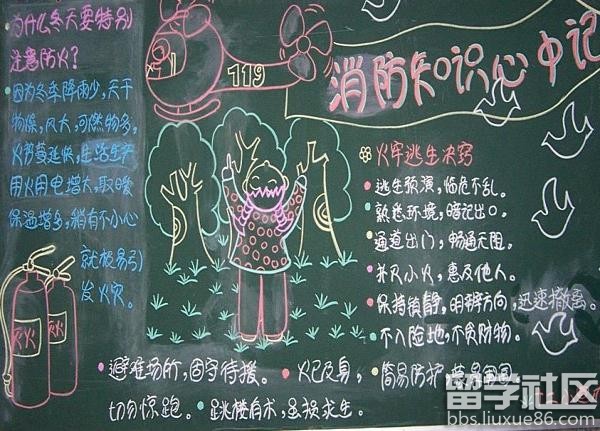 为什么冬天要特别
注意防火?
119
消防知识心中记
·因为冬季降雨少,天干
物燥,风大,可燃物多,
火势蔓延快,生活生产
用火用电增大,取暖
保温增多,稍有不小心
就极易引
发火灾。
火灾逃生决窍
·逃生预演,临危不乱。
·熟悉环境,暗记出口。
·通道出门,畅通无阻。
·扑灭小火,惠及他人。
·保持镇静,明辨方向,迅速撤离。
·不入险地,不贪财物。
灭火
火
·避难场所,固守待援。·火已及身,
切勿惊跑。·跳楼有术,虽损求生。
简易防护,
留学社区
bbs.liuxue86.com